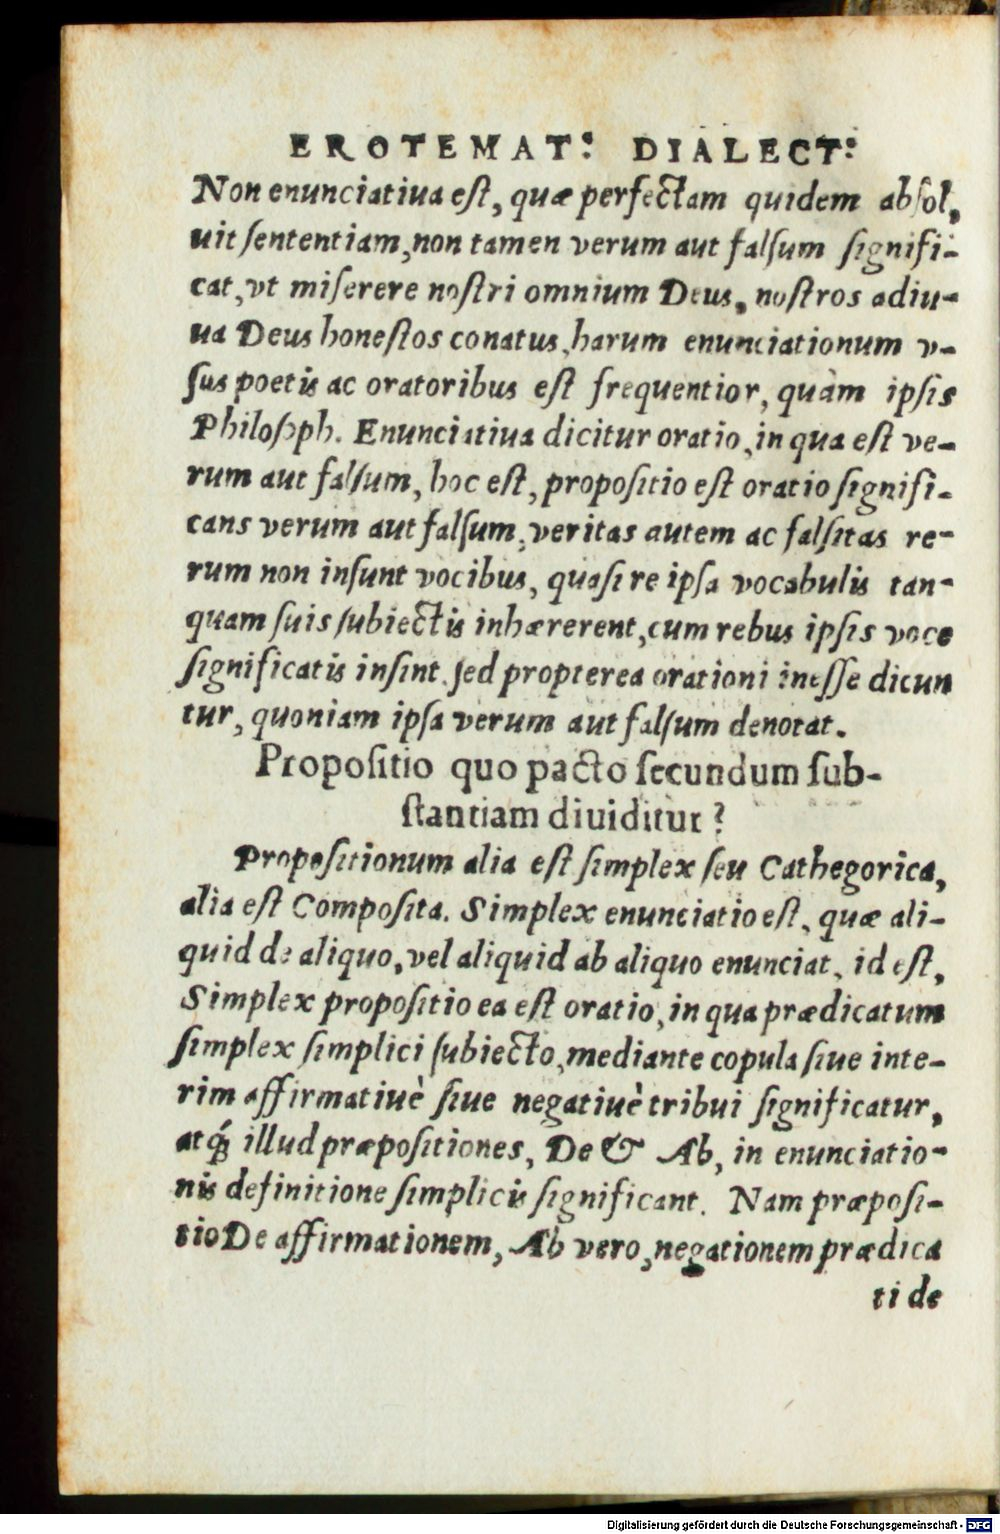 EROTEMAT: DIALECT:
Non enunciatiua est, quæ perfectam quidem absol,
uit sententiam, non tamen verum aut falsum signifi-
cat, vt miserere nostri omnium Deus, nostros adiu-
ua Deus honestos conatus, harum enunciationum v-
sus poetis ac oratoribus est frequentior, quàm ipsis
Philosoph. Enunciatiua dicitur oratio, in qua est ve-
rum aut falsum, hoc est, propositio est oratio signifi-
cans verum aut falsum, veritas autem ac falsitas re-
rum non insunt vocibus, quasi re ipsa vocabulis tan-
quam suis subiectis inhærerent, cum rebus ipsis voce
significatis insint. sed propterea orationi inesse dicun
tur, quoniam ipsa verum aut falsum denotat.
Propositio quo pacto secundum sub-
stantiam diuiditur?
Propositionum alia est simplex seu Cathegorica,
alia est Composita. Simplex enunciatio est, quæ ali-
quid de aliquo, vel aliquid ab aliquo enunciat, id est,
Simplex propositio ea est oratio, in qua prædicatum
simplex simplici subiecto, mediante copula siue inte-
rim affirmatiuè siue negatiuè tribui significatur,
atq́; illud præpositiones, De & Ab, in enunciatio-
nis definitione simplicis significant. Nam præposi-
tio De affirmationem, Ab vero, negationem prædica
ti de
Digitalisierung gefördert durch die Deutsche Forschungsgemeinschaft - DFG